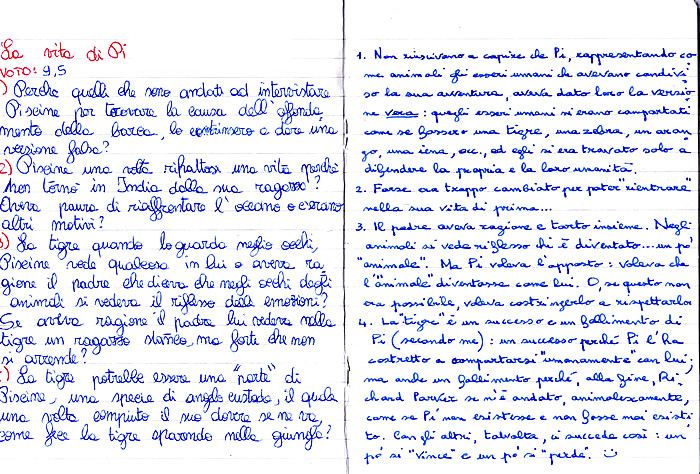 La vita di Pi
VOTO: 9,5
) Perché quelli che sono andati ad intervistare
Piscine per trovare la causa dell'affonda,
mento della barca, lo costrinsero a dare una
versione falsa?
2) Piscine una volta rifattosi una vita perché
non tornò in India dalla sua ragazza?
Aveva paura di riaffrontare l'oceano o c'erano
altri motivi?
) La tigre quando lo guarda negli occhi,
Piscine vede qualcosa in lui o aveva ra,
gione il padre che diceva che negli occhi degli
animali si vedeva il riflesso delle emozioni?
Se aveva ragione il padre lui vedeva nella
tigre un ragazzo stanco, ma forte che non
si arrende?
) La tigre potrebbe essere una "parte" di
Piscine, una specie di angelo custode, il quale
una volta compiuto il suo dovere se ne va,
come fece la tigre sparendo nella giungla?
1. Non riuscivano a capire che Pi, rappresentando co
me animali gli esseri umani che avevano condivi
so la sua avventura, aveva dato loro la versio
ne vera: quegli esseri umani si erano comportati
come se fossero una tigre, una zebra, un oran
go, una iena, ecc., ed egli si era trovato solo a
difendere la propria e la loro umanità.
2. Forse era troppo cambiato per poter "rientrare"
nella sua vita di prima...
3. Il padre aveva ragione e torto insieme. Negli
animali si vede riflesso chi è diventato... un po'
"animale". Ma Pi voleva l'opposto: voleva che
l'"animale" diventasse come lui. O, se questo non
era possibile, voleva costringerlo a rispettarlo
4. La "tigre" è un successo e un fallimento di
Pi (secondo me): un successo perché Pi l'ha
costretto a comportarsi "umanamente" con lui;
ma anche un fallimento perché, alla fine, Ri,
chard Parker se n'è andato, animalescamente,
come se Pi non esistesse e non fosse mai esisti
to. Con gli altri, talvolta, ci succede così: un
po' si "vince" e un po' si "perde". ☺